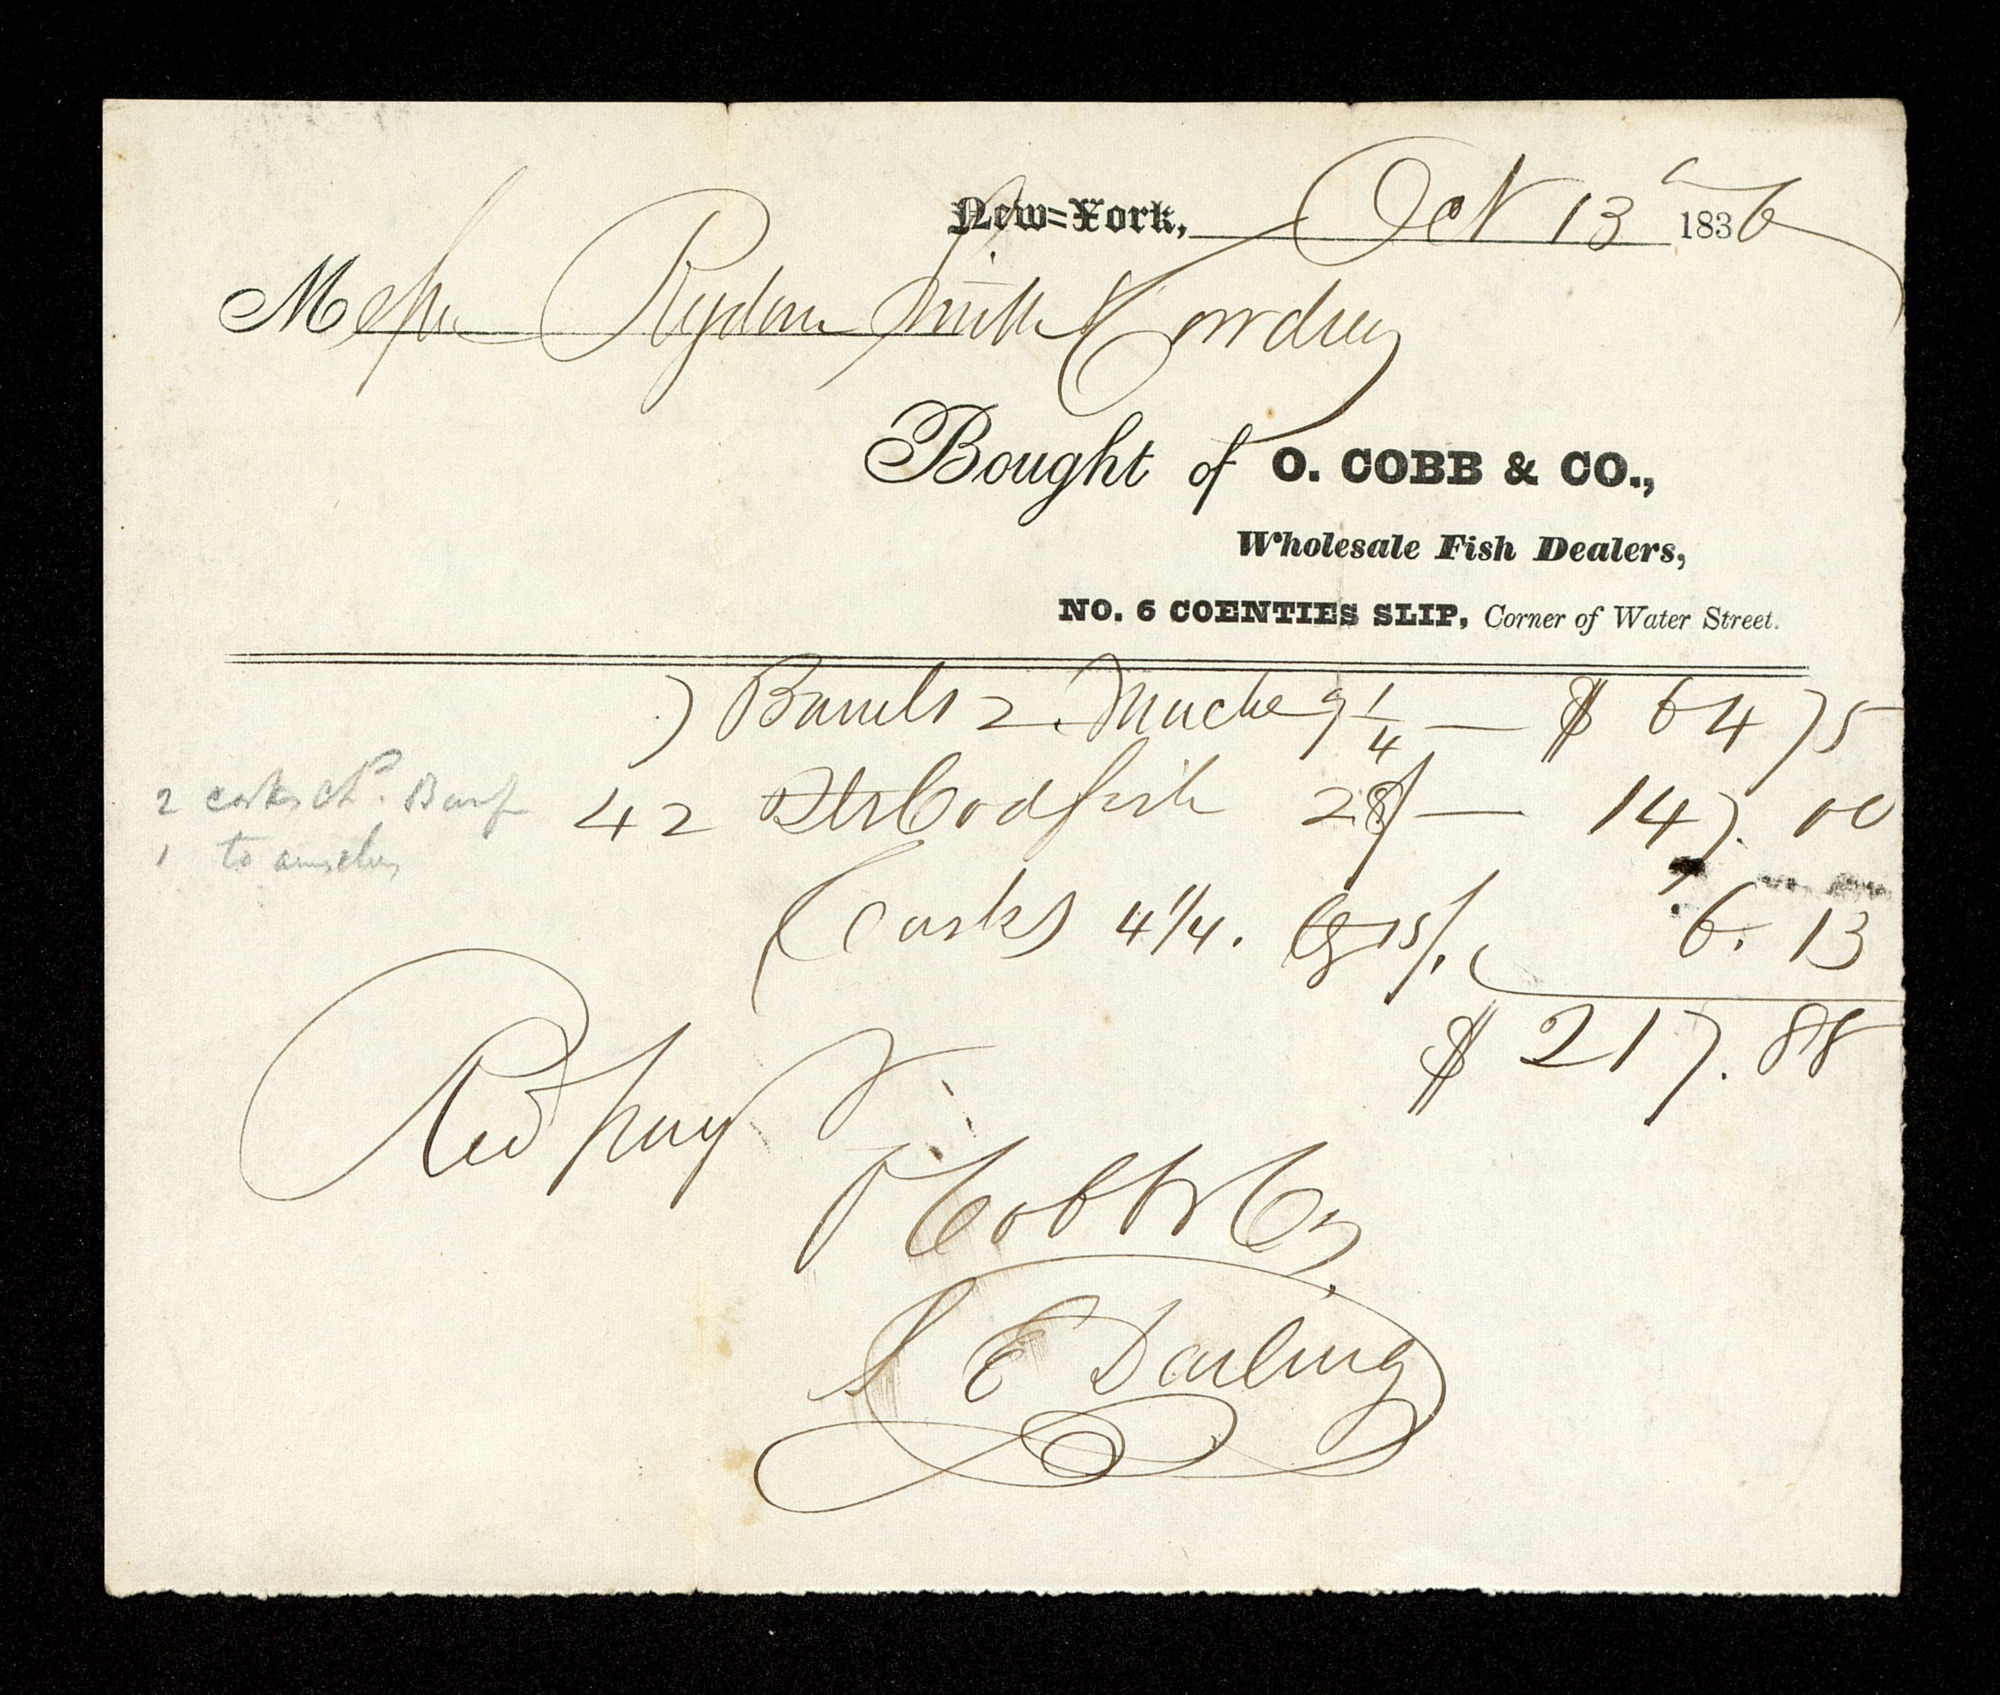 New-York, Oct 13 1836
Messrs Rydon Smith & Cowdrey
Bought of O. COBB & CO.,
Wholesale Fish Dealers,
NO. 6 COENTIES SLIP, Corner of Water Street.
7 Barrels 2 Mackl 9 1/4 — $ 64 75
2 casks
42 Codfish 28/ — 147. 00
1 to
Casks 4 1/4. 6. 13
$ 217. 88
Recd pay
O Cobb & Co
S E Darling